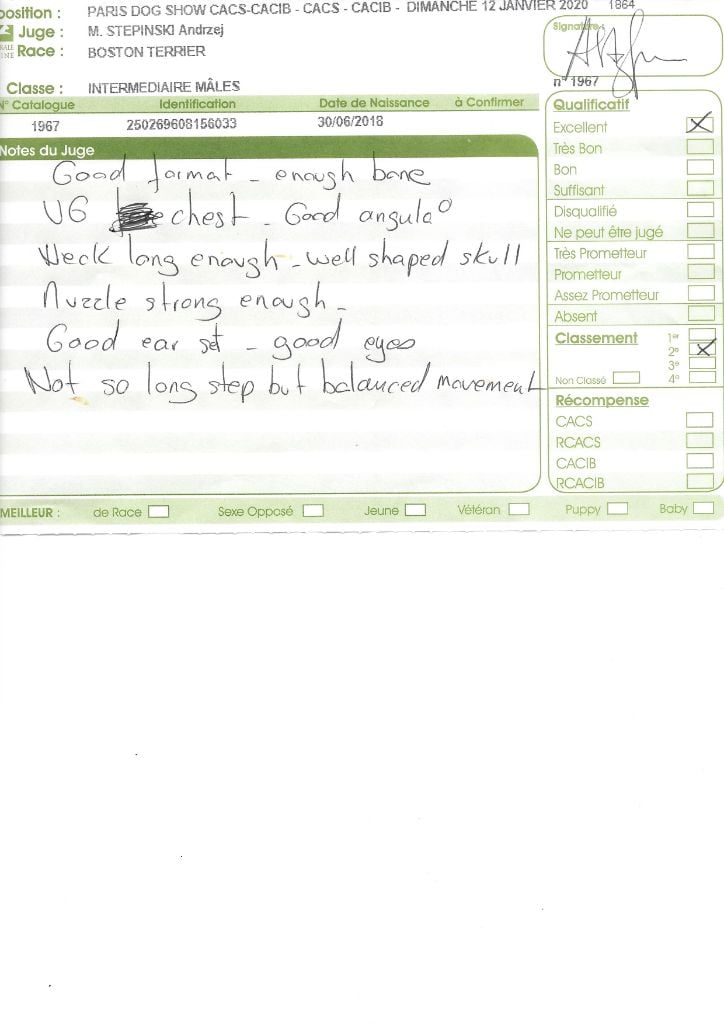 position : PARIS DOG SHOW CACS-CACIB - CACS - CACIB - DIMANCHE 12 JANVIER 2020 1864
Juge : M. STEPINSKI Andrzej
Race : BOSTON TERRIER
Signature :
n° 1967
Classe : INTERMEDIAIRE MÂLES
N° Catalogue Identification Date de Naissance à Confirmer
1967 250269608156033 30/06/2018
Notes du Juge
Good format - enough bone
VG chest - Good angula°
Neck long enough - well shaped skull
Muzzle strong enough -
Good ear set - good eyes
Not so long step but balanced movement
Qualificatif
Excellent
Très Bon
Bon
Suffisant
Disqualifié
Ne peut être jugé
Très Prometteur
Prometteur
Assez Prometteur
Absent
Classement 1er
2°
3°
Non Classé 4°
Récompense
CACS
RCACS
CACIB
RCACIB
MEILLEUR : de Race Sexe Opposé Jeune Vétéran Puppy Baby